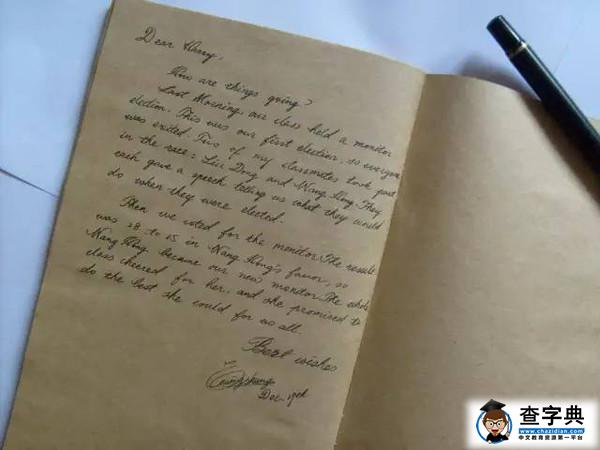 Dear Harry,
How are things going?
Last Morning, our class held a monitor
election. This was our first election, so everyone
was exited. Two of my classmates took part
in the race: Liu Dong and Wang Hong. They
each gave a speech telling us what they would
do when they were elected.
Then we voted for the monitor. The result
was 28 to 15 in Wang Hong's favor, so
Wang Hong became our new monitor. The whole
class cheered for her, and she promised to
do the best she could for us all.
Best wishes
Dec.
查字典
www.chazidian.com
中文教育资源第一平台